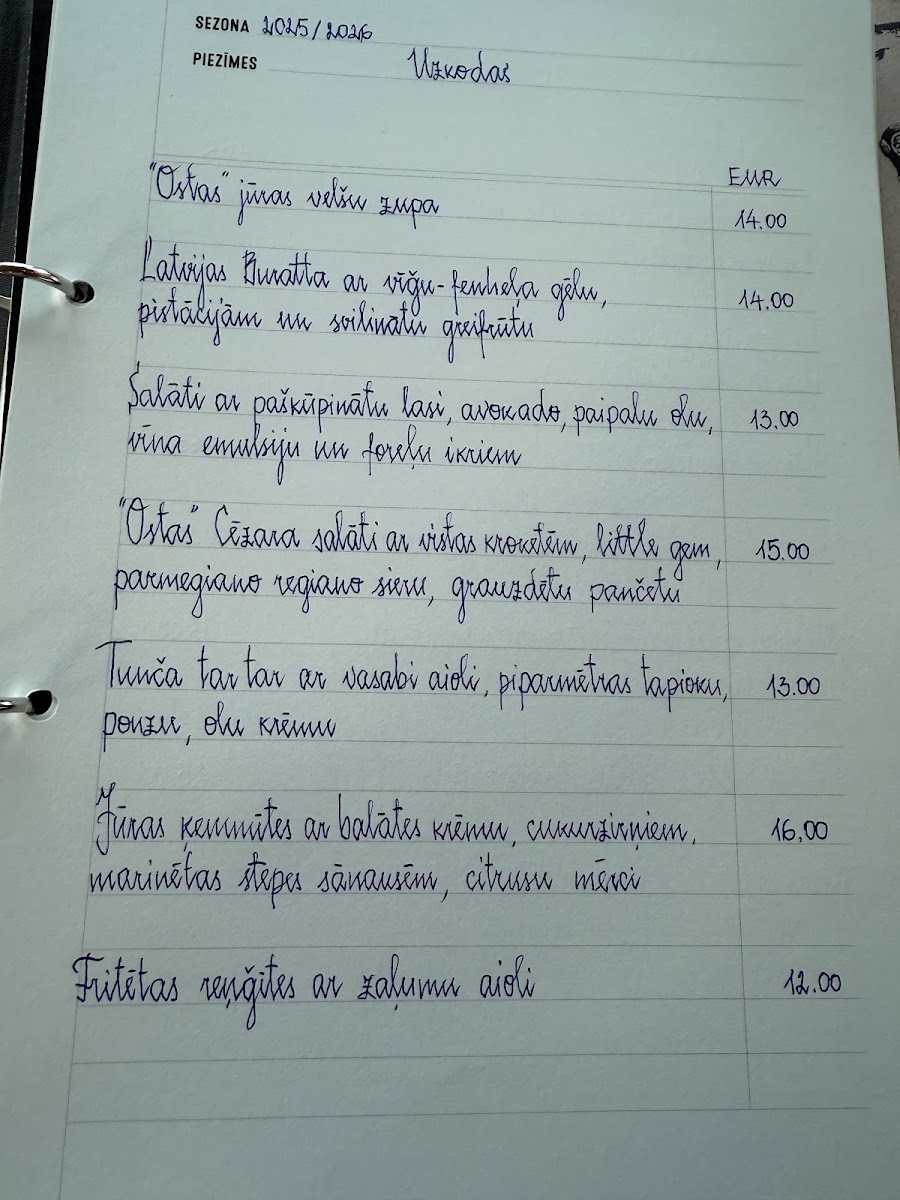 SEZONA 2025/2026
PIEZĪMES Uzkodas
EUR
"Ostas" jūras velšu zupa 14.00
Latvijas Buratta ar vīģu-fenheļa gēlu, 14.00
pistācijām un svilinātu greifrūtu
Salāti ar paškūpinātu lasi, avokado, paipalu olu, 13.00
vīna emulsiju un foreļu ikriem
"Ostas" Cēzara salāti ar vistas kroketēm, little gem, 15.00
parmegiano regiano sieru, grauzdētu pančetu
Tunča tar tar ar vasabi aioli, piparmētras tapioku, 13.00
ponzu, olu krēmu
Jūras ķemmītes ar balātes krēmu, cukurzirņiem, 16,00
marinētas stepes sānausēm, citrusu mērci
Fritētas reņģītes ar zaļumu aioli 12.00